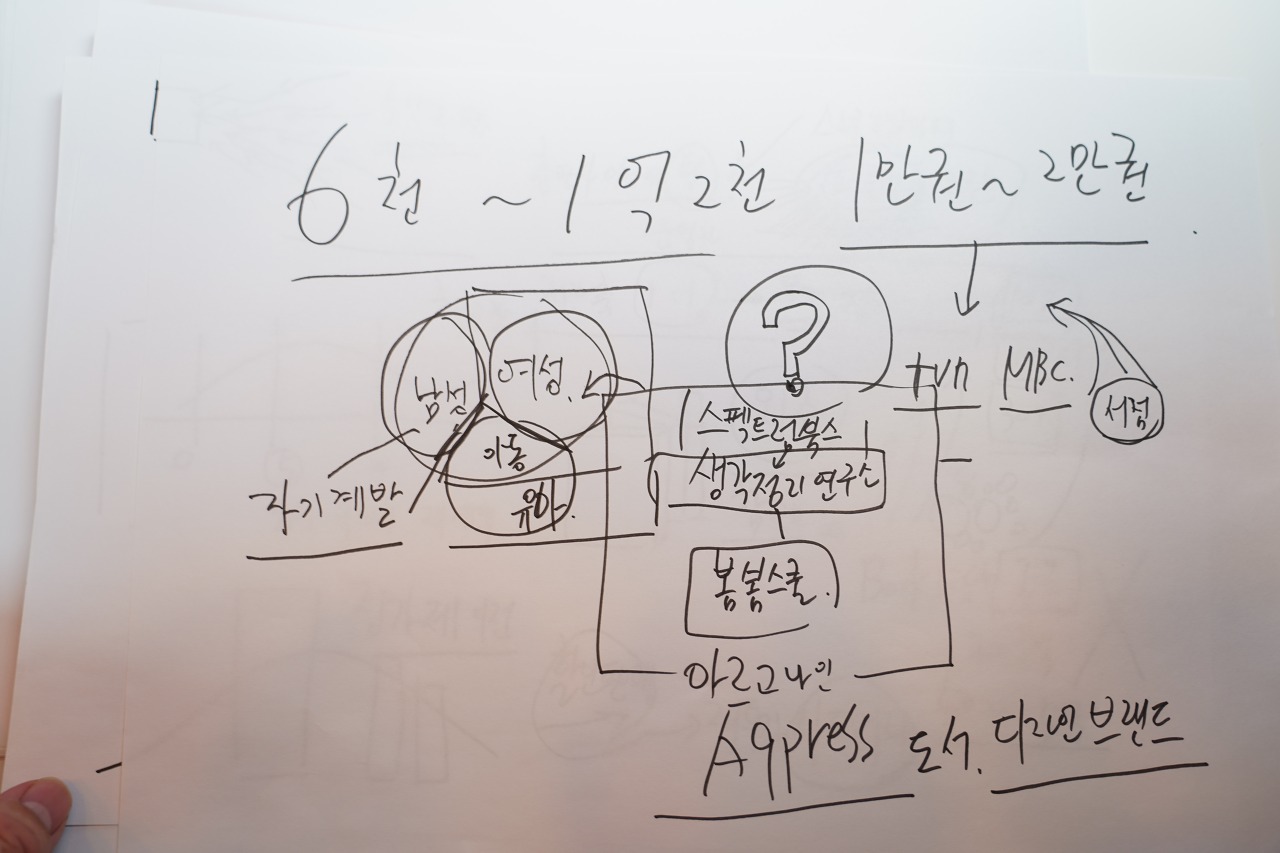 6천 ~ 1억 2천 1만권 ~ 2만권
?
남성 여성
아동
유아
자기계발
tvn MBC. 서점
스펙트럼북스
생각정리연구소
봄봄스쿨.
아르고나인
A9press 도서. 디자인브랜드